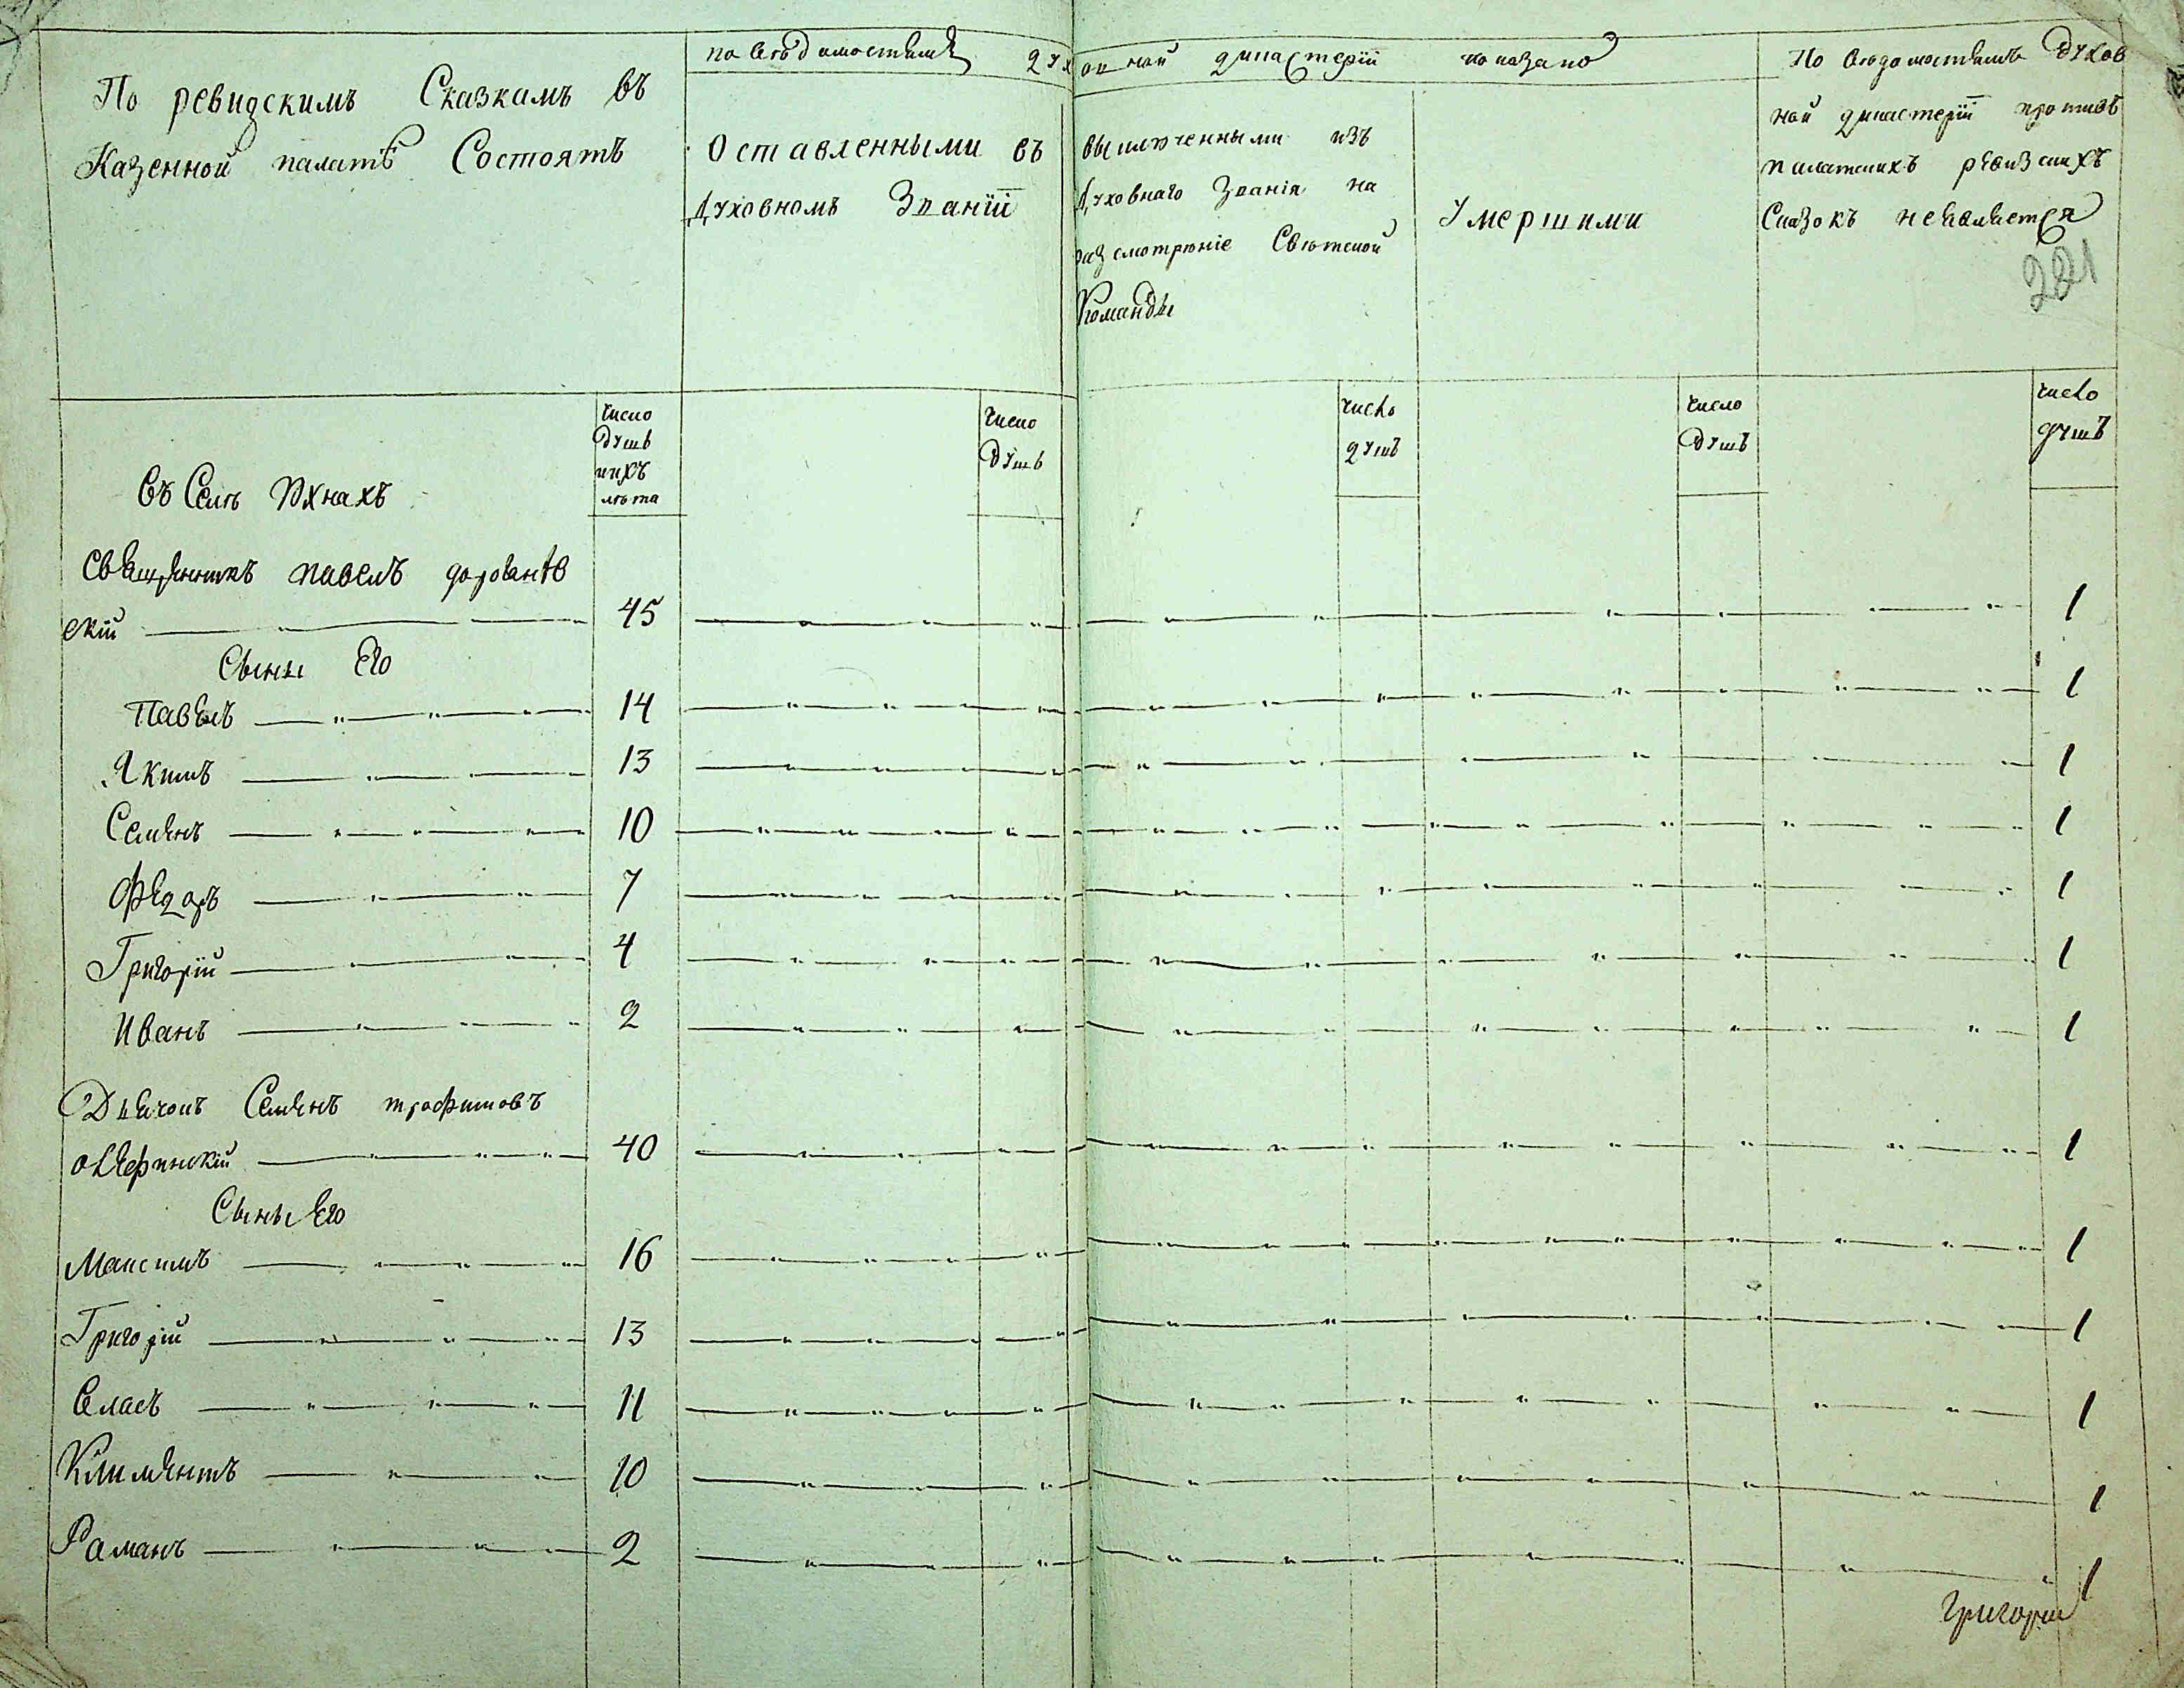 По ревидскимъ Сказкамъ въ
Казенной палатѣ Состоятъ
по вѣдомостямъ дух овной дикастерїи показано
Оставленными въ
Духовномъ Званїи
выключенными изъ
Духовнаго Званія на
разсмотрѣніе Свѣтской
Команды
Умершими
По вѣдомостямъ Духов
ной дикастерїи противъ
палатскихъ ревизскихъ
Сказокъ неявляется
221
число
душъ
ихъ
лѣта
число
душъ
число
душъ
число
душъ
число
душъ
Въ Селѣ Юхнахъ
Священникъ павелъ
скій 45 1
Сыны Его
Павелъ 14 1
Якимъ 13 1
Семенъ 10 1
Федоръ 7 1
Григорїй 4 1
Иванъ 2 1
Дьячокъ Семенъ трофимовъ
40 1
Сыны Его
Максимъ 16 1
Григорїй 13 1
Власъ 11 1
Климентъ 10 1
Раманъ 2 1
Григорїй